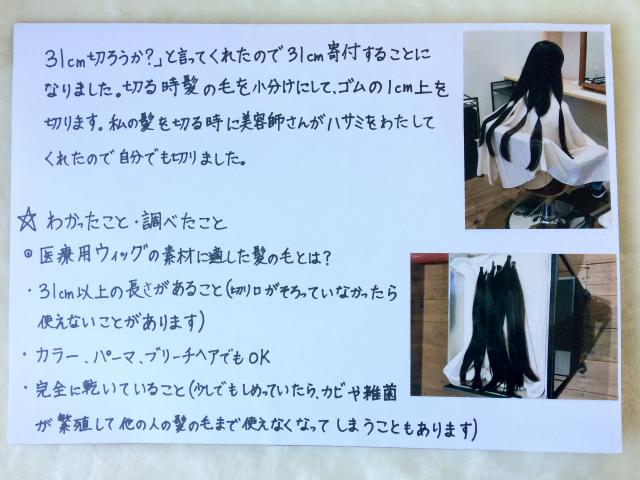 31cm切ろうか?」と言ってくれたので31cm寄付することに
なりました。切る時髪の毛を小分けにして、ゴムの1cm上を
切ります。私の髪を切る時に美容師さんがハサミをわたして
くれたので自分でも切りました。
☆ わかったこと・調べたこと
◎ 医療用ウィッグの素材に適した髪の毛とは?
・31cm以上の長さがあること(切り口がそろっていなかったら
使えないことがあります)
・カラー、パーマ、ブリーチヘアでもOK
・完全に乾いていること(少しでもしめっていたら、カビや雑菌
が繁殖して他の人の髪の毛まで使えなくなってしまうこともあります)